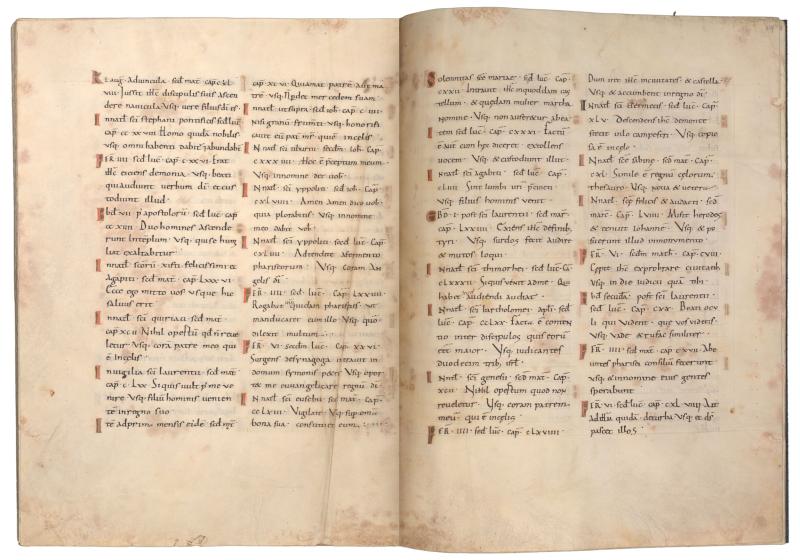 Kł aug. Aduincula. sed mat. cap. c
viii. Iussit ihs discipulis suis ascen
dere nauicula. Usq. uere filius di es.
In nat sci stephani pontificis sed luc
cap. cc xx viii. Homo quidā nobilis
usq. omni habenti dabit & habundabit
FR iiii. sed luc. cap. cx vi. Erat
ihs eiciens demonia. Usq. beati
qui audiunt uerbum di et cus
todiunt illud.
Ebd vii. p apostolorū. sed luc. cap
cc xiii. Duo homines ascende
runt in templum. Usq. qui se humi
liat exaltabitur.
In nat scorū xisti felicissimi &
agapiti. sed mat. cap. Lxxx vi.
Ecce ego mitto uos usque hic
saluus erit.
In nat sci quiriaci. sed mat.
cap. xc ii. Nihil opertū qd n reue
letur. Usq. corā patre meo qui
ē in celis.
In uigilia sci laurentii. sed mat.
cap. c Lxx. Si quis uult p me ue
nire. Usq. filiū hominis uenien
tē in regno suo
Itē ad prim. mensis eide. sed mat
cap. xl vi. Qui amat patrē aut ma
trē. Usq. N perdet mercedem suam.
In nat ut supra. sed ioh. cap. c iiii.
Nisi granū frumti. usq. honorifi
cauit eū pat ms qui ē in celis
In nat sci tiburtii. secdm ioh. cap
cxxx iiii. Hoc ē preceptum meum.
Usq. in nomine det uob.
In nat sci yppoliti. sed ioh. cap.
cxl viii. Amen amen dico uob.
quia plorabitis. Usq. in nomine
meo dabit uob.
In nat sci yppoliti. secd luc. cap.
cxl iii. Adtendite a fermento
phariseorum. Usq. coram an
gelis di.
FR iiii. sed luc. cap. Lxx iiii.
Rogabat ihm quidam phariseus. ut
manducaret cum illo. Usq. quo
dilexit multum.
FR vi. secdm luc. cap. xx vi.
Surgens de synagoga intrauit in
domum symonis petri. Usq. opor
tet me euuangelizare regnū di
In nat sci eusebii. sed mat. cap.
cc Lxiii. Vigilate. Usq. sup omnia
bona sua. constituet eum.
Solemnitas sce mariae. sed luc. cap.
cxx ii. Intrauit ihs in quoddam cas
tellum. & quędam mulier martha
nomine. Usq. non auferetur ab ea
Item sed luc. cap. cxxx i. Factū
ē aut cum hęc diceret. extollens
uocem. Usq. & custodiunt illut.
In nat sci agapiti. sed luc. cap.
cl iii. Sint lumbi uri p cincti.
Usq. filius hominis uenit.
EBD. I. post sci laurentii. sed mar.
cap. Lxx iiii. Exiens ihs de finib.
tyri. Usq. surdos fecit audire
& mutos loqui.
In nat sci thimothei. sed luc. ca
c Lxxxii. Siquis uenit ad me. Qui
habet aures audiendi audiat.
In nat sci bartholomei apli. sed
luc. cap. cc Lxx. Facta ē conten
tio inter discipulos quis eorū
eēt maior. Usq. iudicantes
duodecim trib. isrl.
In nat sci genesii. sed mat. cap.
xc ii. Nihil opertum quod non
reueletur. Usq. coram patrem
meū qui ē in celis.
FR. iiii. sed luc. cap. c Lxviiii.
Dum iret ihs in ciuitates & castella
Usq. & accumbent in regno di
In nat sci &ermetis. sed luc. cap
xL v. Descendens ihs de monte
stetit in loco campestri. Usq. copio
sa ē in celo.
In nat sce sabine. sed mat. cap.
cxL. Simile ē regnū cęlorum.
thesauro. Usq. noua & uetera.
In nat scōr felicis & audacti. sed
marc. cap. L viii. Misit herodes
& tenuit iohanne. Usq. & po
suerunt illud in monumento
FR. vi. sedm mat. cap. c viii.
Cepit ihs exprobrare ciuitatib.
Usq. in die iudicii qua tibi.
Ebd secūda. post sci laurentii.
sed luc. cap. cxx. Beati ocu
li qui uident. quę uos uidetis.
Usq. uade & tu fac similiter.
FR. iiii. sed mat. cap. cxx ii. Abe
untes pharisei consiliū fecerunt.
usq. & in nomine eius gentes
sperabunt.
FR. vi. sed luc. cap. cxL viiii. Ait
ad ihm quidā. de turba. Usq. et ds
pascit illos.